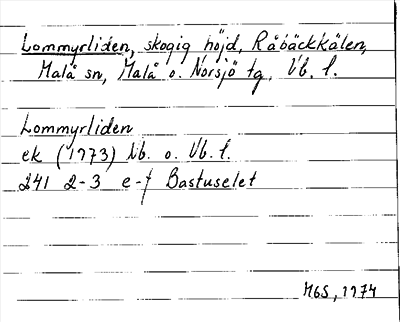 Lommyrliden, skogig höjd, Råbäckkälen,
Malå sn, Malå o. Norsjö tg, Vb. l.
Lommyrliden
ek (1973) Nb. o. Vb. l.
241 2-3 e-f Bastuselet
MGS, 1974